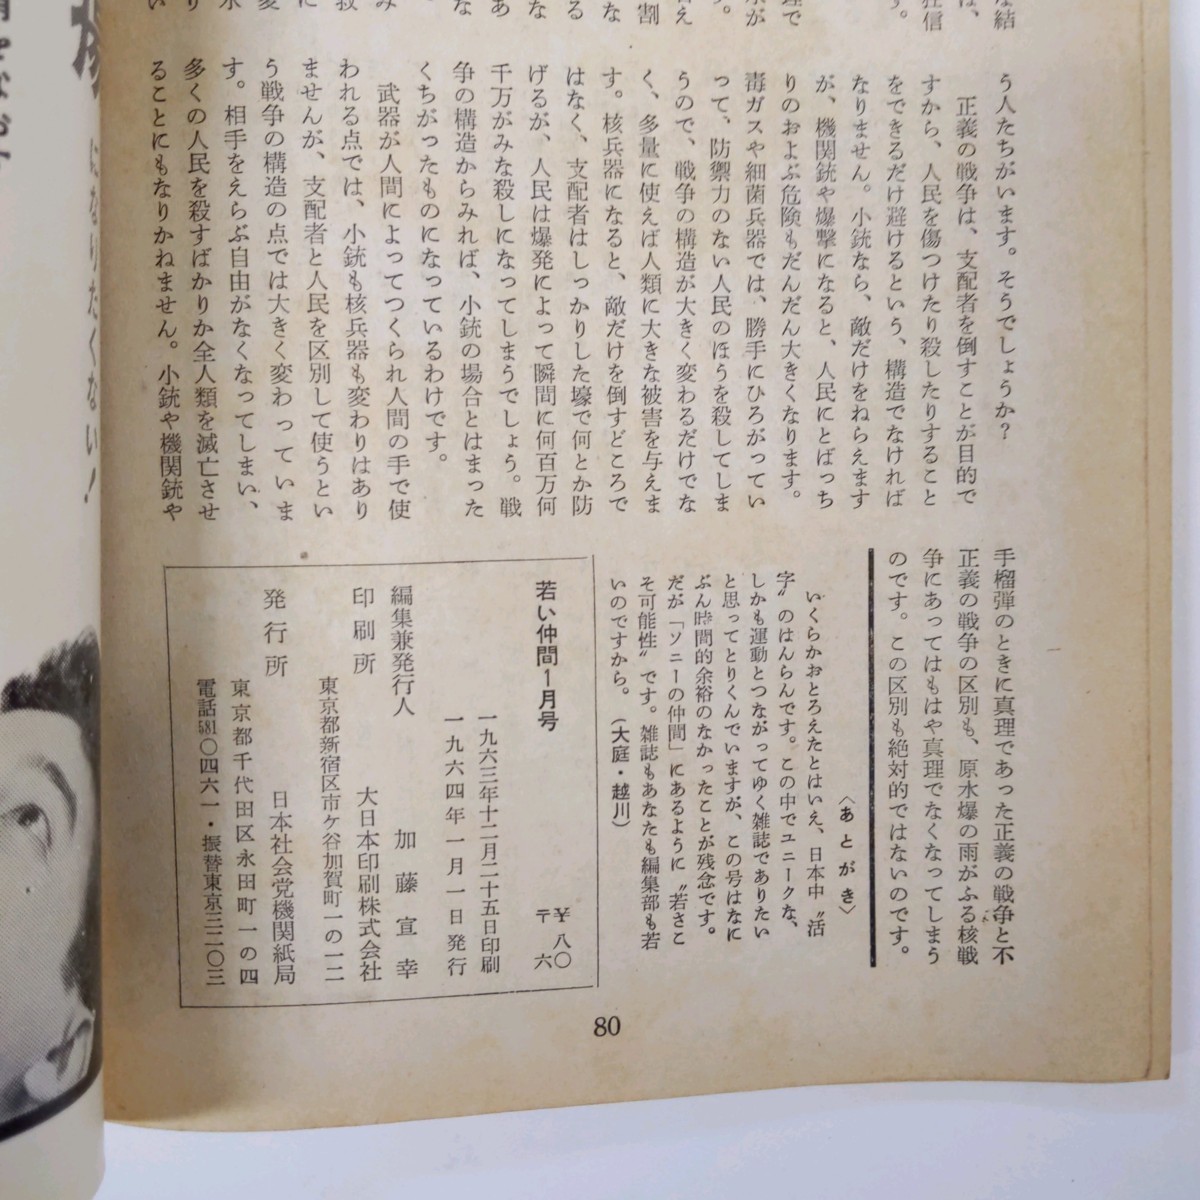 う人たちがいます。そうでしょうか？
正義の戦争は、支配者を倒すことが目的で
すから、人民を傷つけたり殺したりすること
をできるだけ避けるという、構造でなければ
なりません。小銃なら、敵だけをねらえます
が、機関銃や爆撃になると、人民にとばっち
りのおよぶ危険もだんだん大きくなります。
毒ガスや細菌兵器では、勝手にひろがってい
って、防禦力のない人民のほうを殺してしま
うので、戦争の構造が大きく変わるだけでな
く、多量に使えば人類に大きな被害を与えま
す。核兵器になると、敵だけを倒すどころで
はなく、支配者はしっかりした壕で何とか防
げるが、人民は爆発によって瞬間に何百万何
千万がみな殺しになってしまうでしょう。戦
争の構造からみれば、小銃の場合とはまった
くちがったものになっているわけです。
武器が人間によってつくられ人間の手で使
われる点では、小銃も核兵器も変わりはあり
ませんが、支配者と人民を区別して使うとい
う戦争の構造の点では大きく変わっていま
す。相手をえらぶ自由がなくなってしまい、
多くの人民を殺すばかりか全人類を滅亡させ
ることにもなりかねません。小銃や機関銃や
手榴弾のときに真理であった正義の戦争と不
正義の戦争の区別も、原水爆の雨がふる核戦
争にあってはもはや真理でなくなってしまう
のです。この区別も絶対的ではないのです。
〈あとがき〉
いくらかおとろえたとはいえ、日本中〝活
字〟のはんらんです。この中でユニークな、
しかも運動とつながってゆく雑誌でありたい
と思ってとりくんでいますが、この号はなに
ぶん時間的余裕のなかったことが残念です。
だが「ソニーの仲間」にあるように〝若さこ
そ可能性〟です。雑誌もあなたも編集部も若
いのですから。（大庭・越川）
若い仲間１月号
¥八〇
〒六
一九六三年十二月二十五日印刷
一九六四年一月一日発行
編集兼発行人 加藤宣幸
印刷所 大日本印刷株式会社
東京都新宿区市ケ谷加賀町一の一二
発行所 日本社会党機関紙局
東京都千代田区永田町一の四
電話581〇四六一・振替東京三二〇三
80
になりたくない！